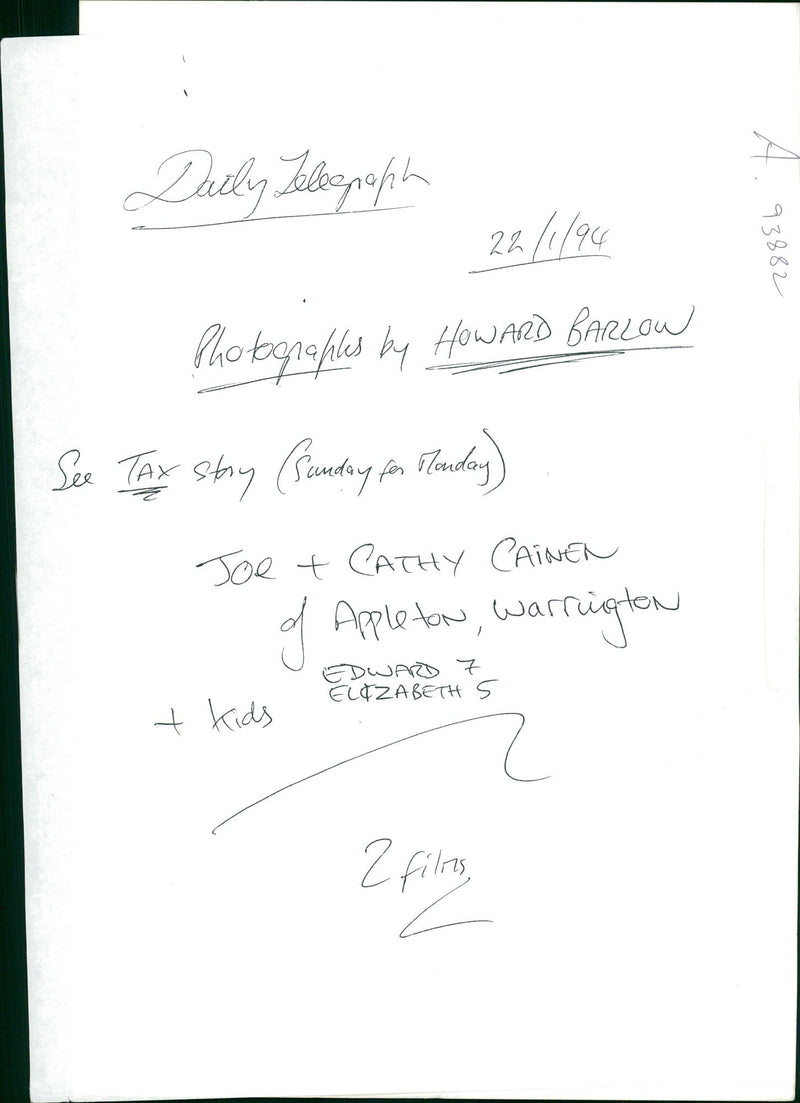 Daily Telegraph
22/1/94
A. 93882
Photographs by HOWARD BARLOW
See TAX story (Sunday for Monday)
Joe + CATHY CAINEN
of Appleton, Warrington
EDWARD 7
ELIZABETH 5
+ kids
2 films